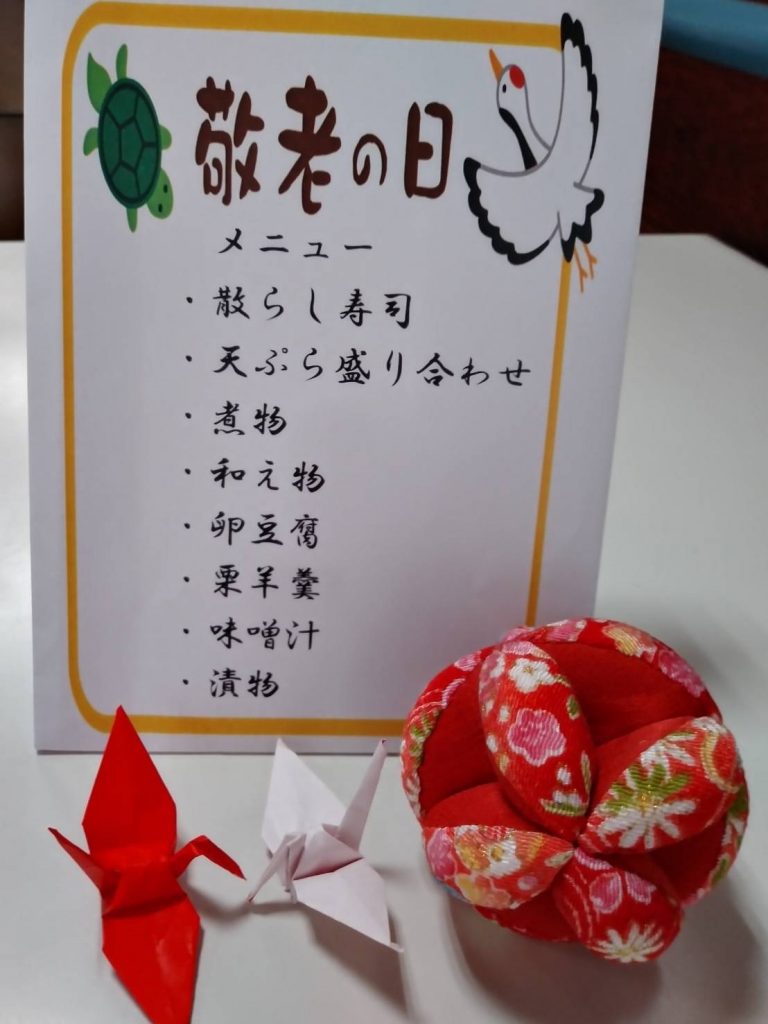 敬老の日
メニュー
・散らし寿司
・天ぷら盛り合わせ
・煮物
・和え物
・卵豆腐
・栗羊羹
・味噌汁
・漬物